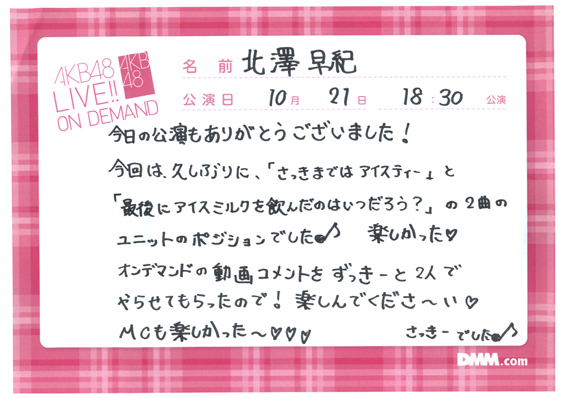 AKB48
LIVE!!
ON DEMAND
AKB
48
名前 北澤早紀
公演日 10月 21日 18:30 公演
今日の公演もありがとうございました!
今回は、久しぶりに、「さっきまではアイスティー」と
「最後にアイスミルクを飲んだのはいつだろう?」の2曲の
ユニットのポジションでした♪ 楽しかった♡
オンデマンドの動画コメントをずっきーと2人で
やらせてもらったので! 楽しんでくださ〜い♡
MCも楽しかった〜♡♡♡ さっきーでした♪
DMM.com